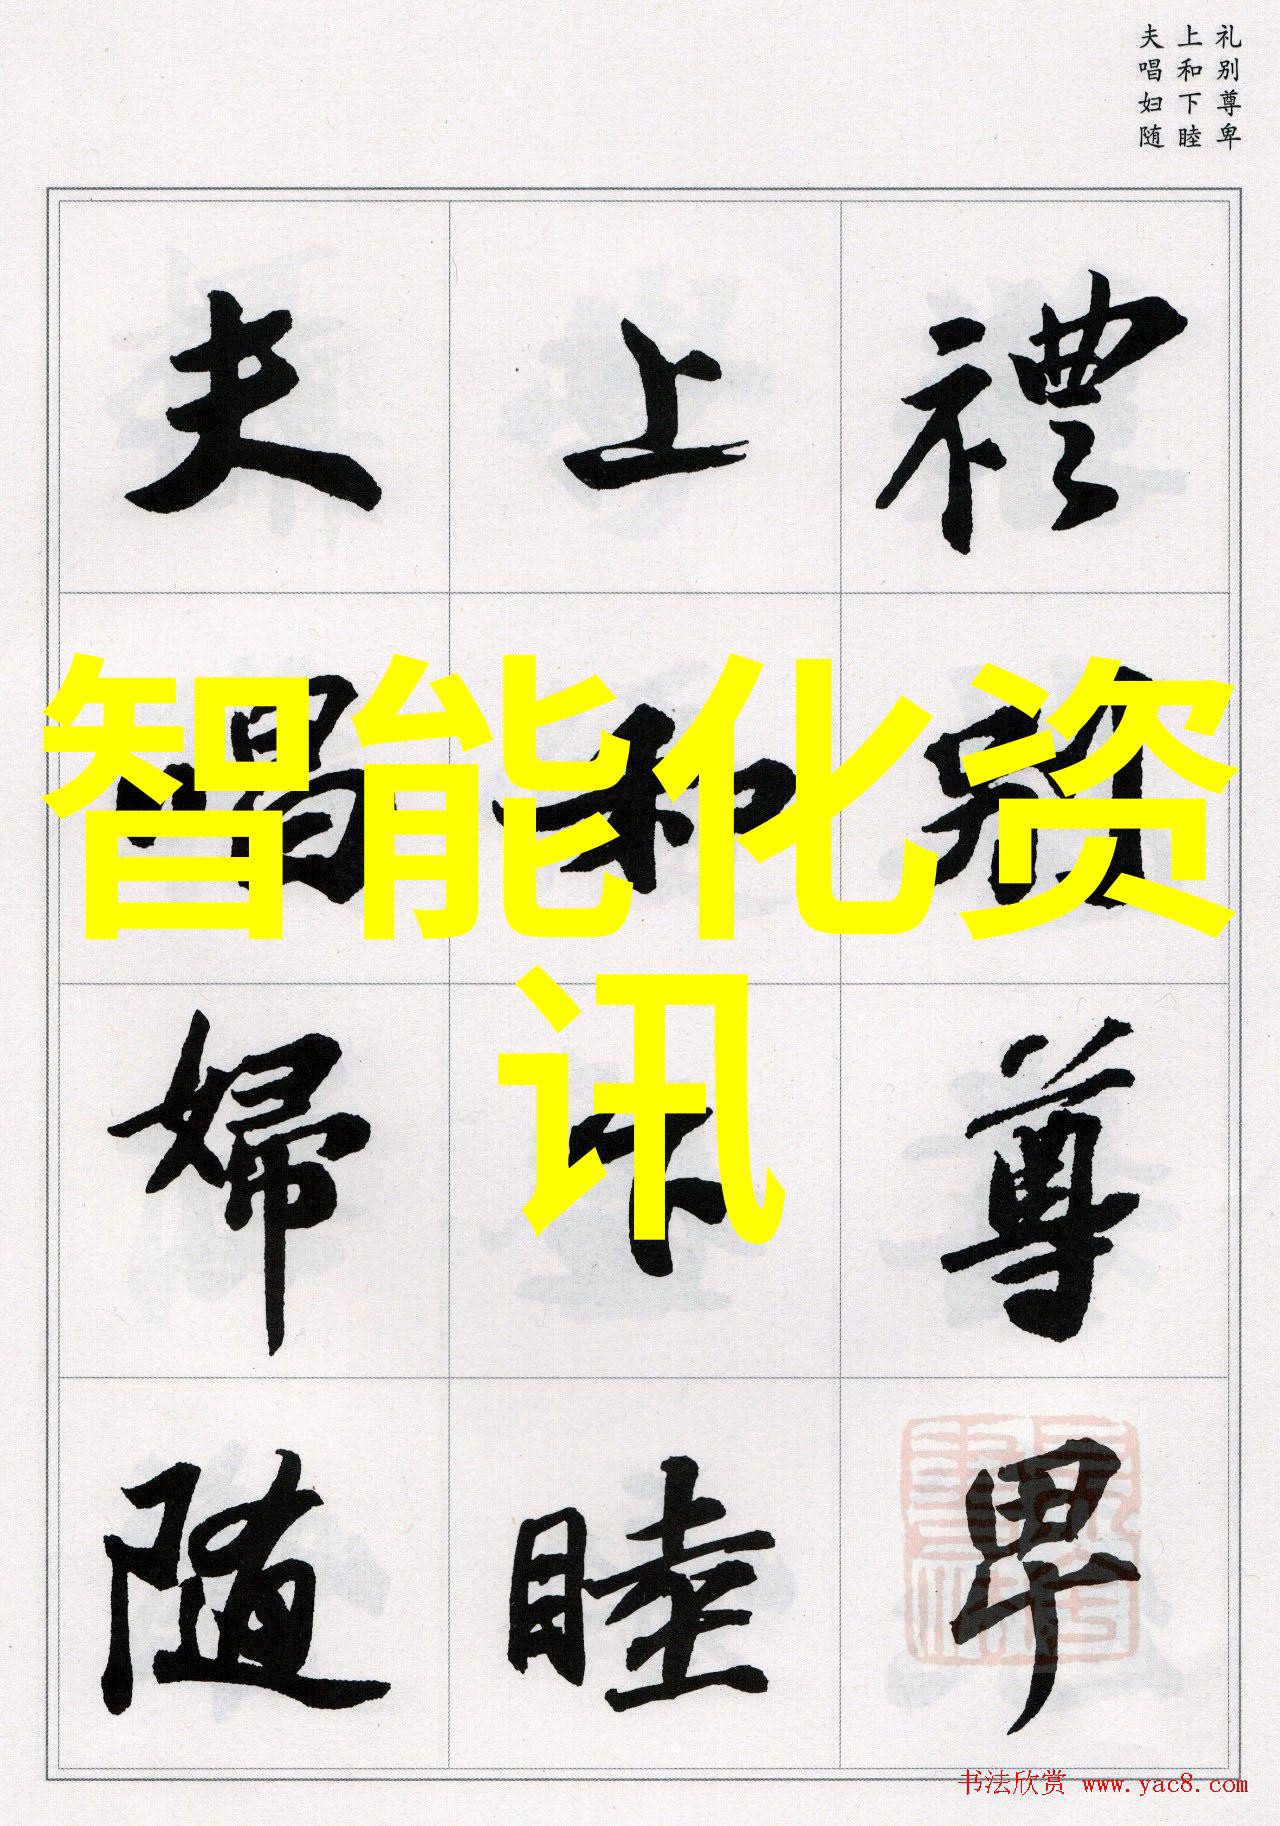 礼别尊卑
上和下睦
夫唱妇随
禮别尊卑
上和下睦
夫唱婦随
智能化资
讯
书法欣赏 www.yac8.com